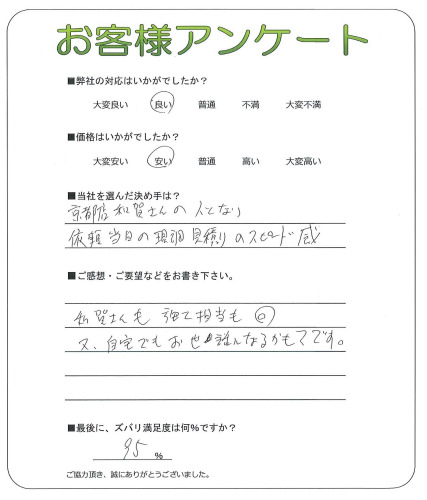 お客様アンケート
■弊社の対応はいかがでしたか？
大変良い 良い 普通 不満 大変不満
■価格はいかがでしたか？
大変安い 安い 普通 高い 大変高い
■当社を選んだ決め手は？
京都店 和賀さんの 人となり
依頼当日の現調見積りのスピード感
■ご感想・ご要望などをお書き下さい。
和賀さんも 担当も ◎
又、自宅でもお世話になるかもです。
■最後に、ズバリ満足度は何％ですか？
95 ％
ご協力頂き、誠にありがとうございました。